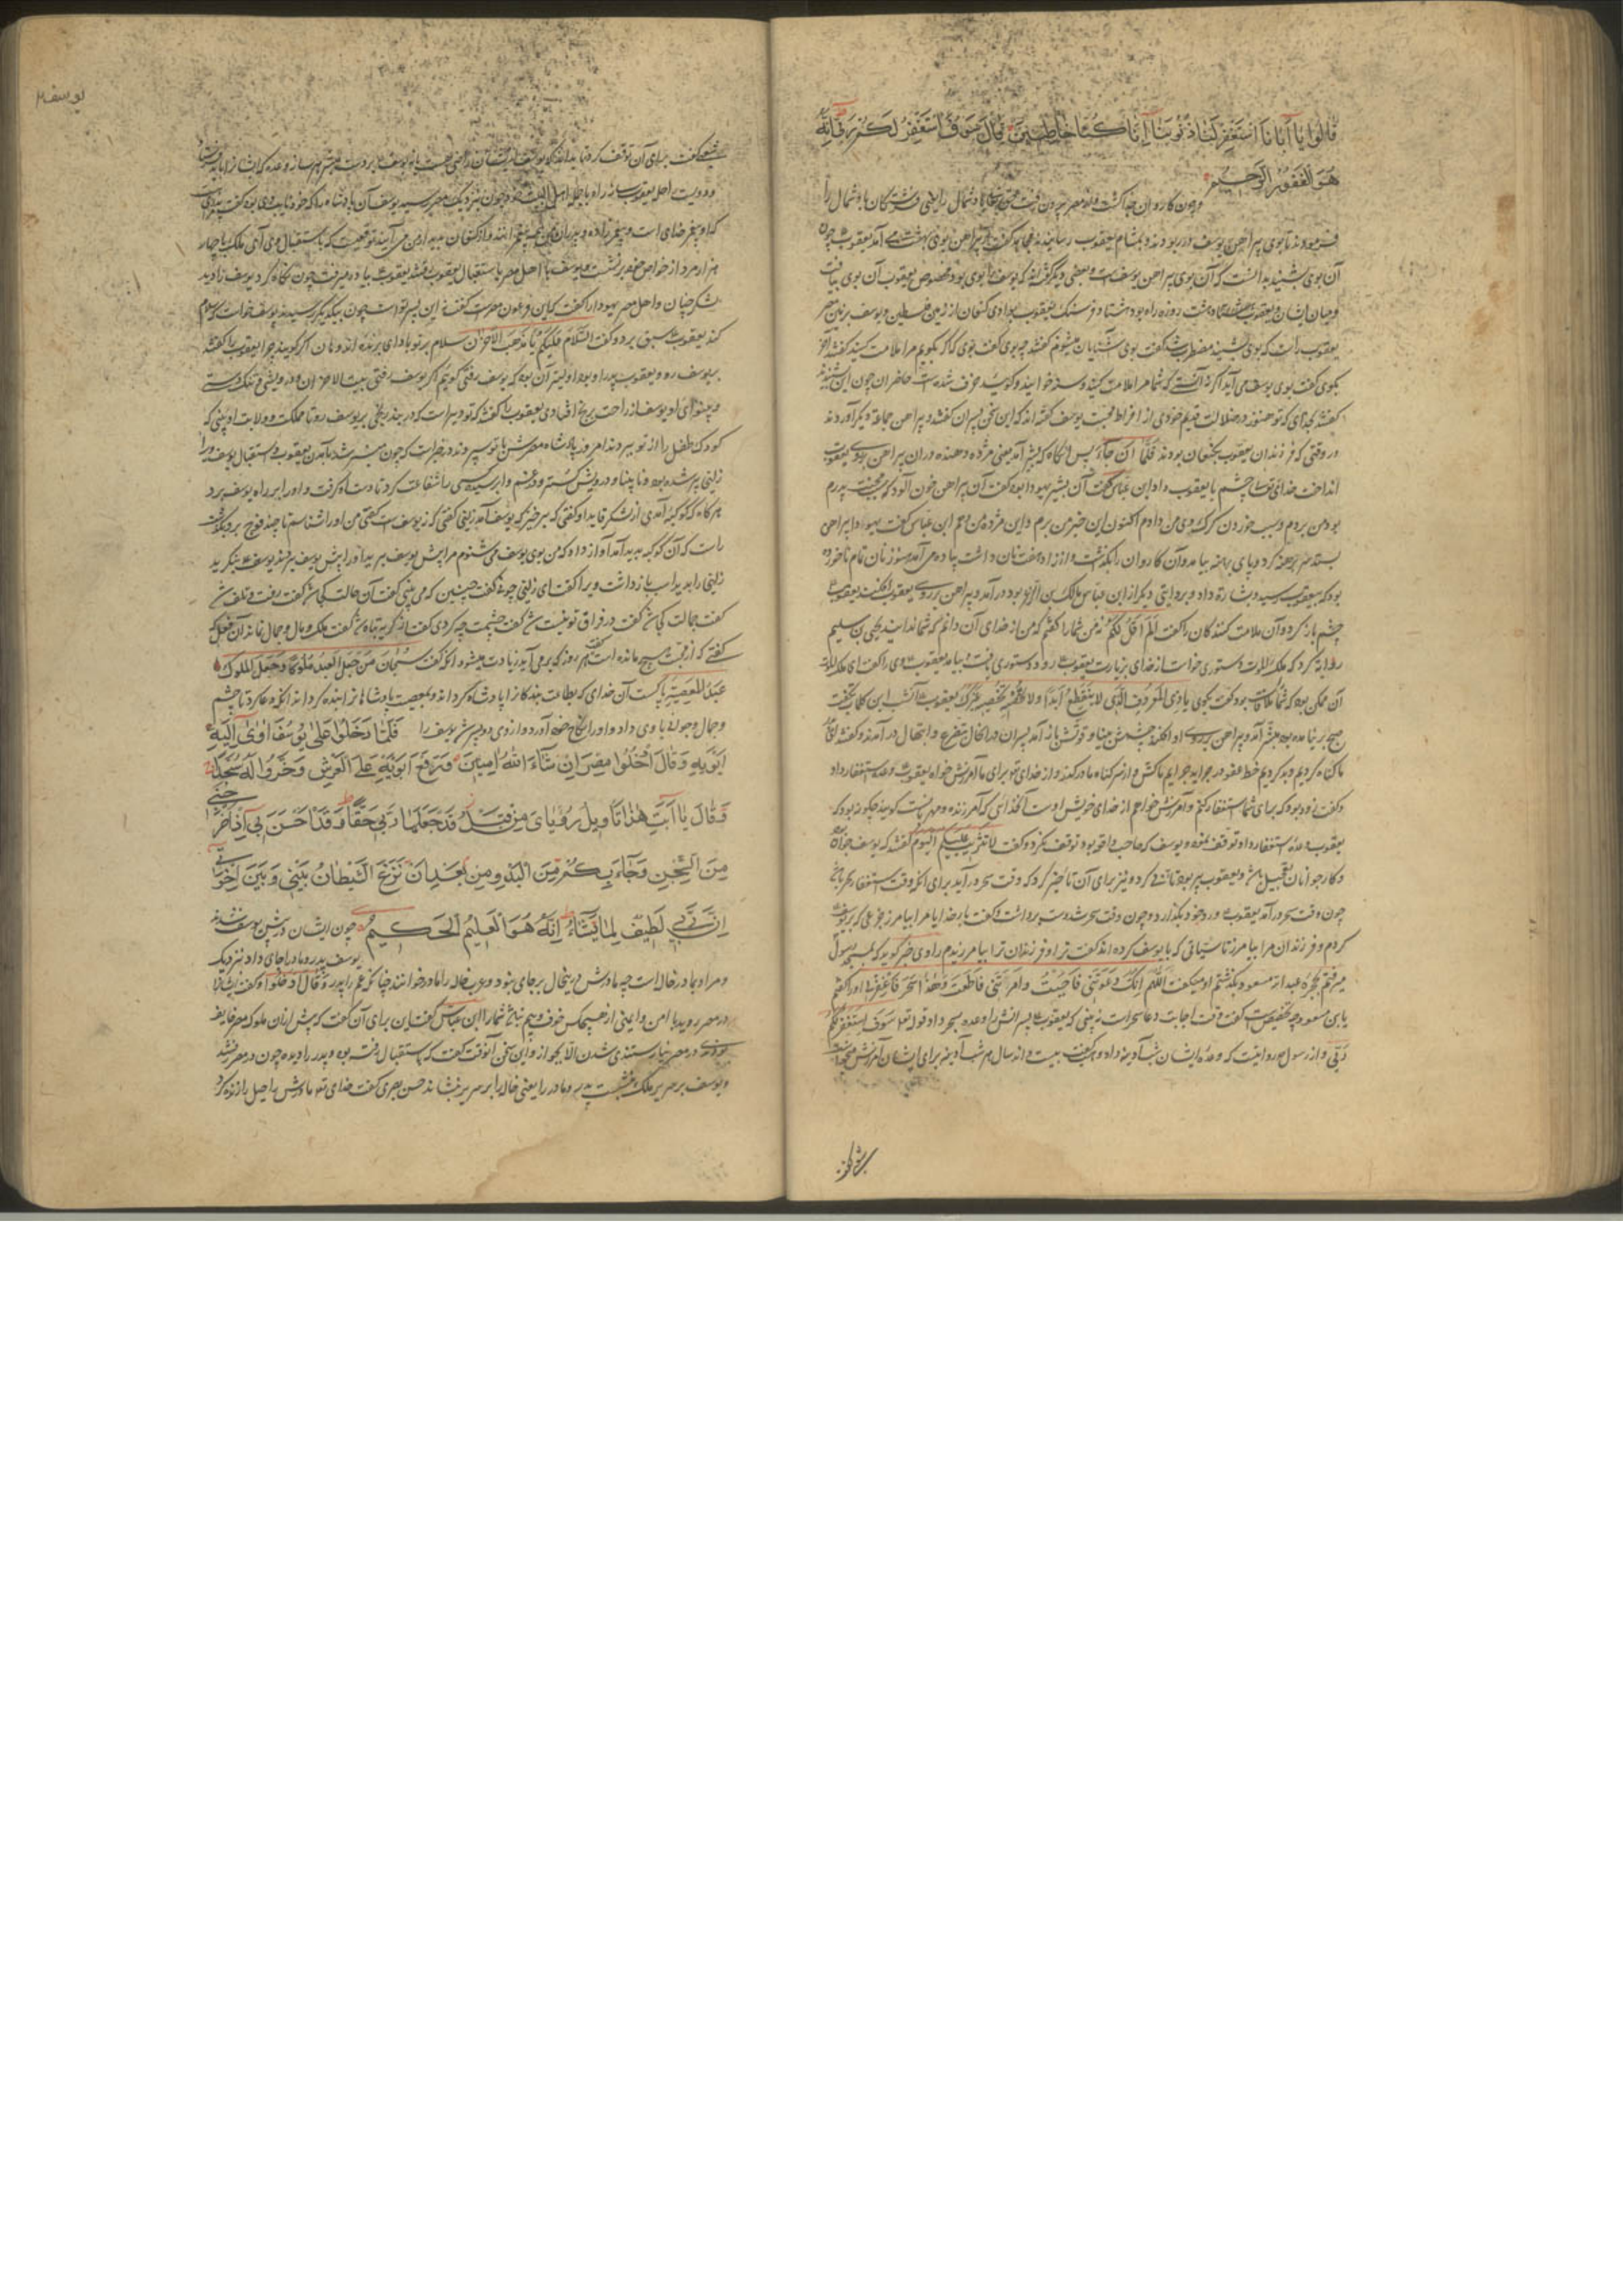 قالوا يا أبانا استغفر لنا ذنوبنا إنا كنا خاطئين قال سوف استغفر لكم ربي إنه
هو الغفور الرحيم
وچون کاروان جدا گشت و از مصر بیرون رفت باد شمال را یعنی فرشتگان باد شمال را
فرمودند تا بوی پیراهن یوسف در ربودند و بمشام یعقوب رسانیدند
آن بوی شنید بدانست که آن بوی پیراهن یوسف است و بعضی دیگر گفته اند که یوسف را بوی بود مخصوص یعقوب آن بوی بیافت
ومیان ایشان و یعقوب هشت روزه راه بود هشتاد فرسنگ یعقوب بوادی کنعان از زمین فلسطین و یوسف بزمین مصر
یعقوب راست که بوی شنید مضطرب شد گفت بوی آشنایان میشنوم گفتند چه بوی گفت بوی که اگر بگویم مرا ملامت کنید گفتند آخر
بگوی گفت بوی یوسف می آید اگر نه آنستی که شما مرا ملامت کنید و خوانید و گوئید خرف شده است حاضران چون این شنیدند
گفتند بخدای که تو هنوز در ضلالت قدیم خودی از افراط محبت یوسف گفته اند که این سخن پسران گفتند و پیراهن جماعة دیگر آوردند
در وقتی که فرزندان یعقوب بکنعان بودند فلما ان جاء پس آنگاه که بشیر آمد یعنی مژده دهنده و آن پیراهن بروی یعقوب
انداخت خدای تعالی چشم با یعقوب داد ابن عباس گفت آن بشیر یهودا بود گفت آن پیراهن خون آلود که پدرم
بود من بردم و سبب خوردن گرگ وی من دادم اکنون این خبر من برم و این مژده من دهم ابن عباس گفت یهودا پیراهن
بستد سر برهنه کرد و پای برهنه بیامد و آن کاروان را بگذشت و از زاد هفت نان داشت پیاده می آمد هنوز نان تمام ناخورده
بود که بیعقوب رسید و بشارة داد و بروایتی دیگر از ابن عباس مالک بن الذعر بود در آمد و پیراهن بر روی یعقوب افکند یعقوب
چشم باز کرد و آن ملامت کنندگان را گفت الم اقل لکم نه من شما را گفتم که من از خدای آن دانم که شما ندانید یحیی بن سلیم
روایة کرد که ملک الموت دستوری خواست از خدای بزیارت یعقوب رود دستوری یافت بیامد یعقوب وی را گفت ای ملک الموت
یعقوب آنشب این کلمات بگفت
صبح بر نیامده بود که مبشر آمد و پیراهن بر روی او افکند و چشمش بینا و قوتش باز آمد پسران در آن حال بتضرع و ابتهال در آمدند و گفتند
ما گناه کردیم و بد کردیم خط عفو در جراید جرایم ما کش و از سر گناه ما در گذر و از خدای تو برای ما آمرزش خواه یعقوب وعده استغفار داد
و گفت زود بود که برای شما استغفار کنم و آمرزش خواهم از خدای خویش اوست آن خدائی که آمرزنده و مهربانست گویند چگونه بود که
یعقوب وعدهٔ استغفار داد و توقف نمود و یوسف که صاحب واقعه بود توقف نکرد و گفت لا تثریب علیکم الیوم گفتند که یوسف جوان
و کار جوانان تعجیل باشد و یعقوب پیر بود تأنی کرد و نیز برای آن تأخیر کرد که وقت سحر در آید برای آنکه وقت استغفار
چون وقت سحر در آمد یعقوب ورد خود بگذارد و چون وقت سحر شد دست برداشت و گفت بار خدایا مرا بیامرز جزعی که بر یوسف
کردم و فرزندان مرا بیامرز تا سیئاتی که با یوسف کرده اند گفت ترا و فرزندان ترا بیامرزیدم راوی خبر گوید که بمسجد رسول
میرفتم بحجرهٔ عبد الله مسعود بگذشتم او میگفت اللهم انک دعوتنی فاجبت وامرتنی فاطعت وهذا سحر فاغفر لی او را گفتم
یا بن مسعود چه تخصیص است گفت وقت اجابت دعا سحر است نه بینی که یعقوب پسرانش را وعده بسحر داد قوله تع سوف استغفر لکم
ربی و از رسول م روایتست که وعده ایشان بشب آدینه داد وهب گفت بیست و اند سال هر شب آدینه برای ایشان آمرزش میخواست
شعبی گفت
یوسف
شعبی گفت برای آن توقف کرد تا بداند که یوسف از ایشان راضی هست یا نه
و دویست راحله یعقوب ساز راه با جمله اهل البیت خود چون بنزدیک مصر رسید یوسف آن پادشاه را که خود نایب وی بود گفت پدر من
که او پیغمبر خدای است و پیغمبر زاده و از کنعان بدیدار من می آید توقع است که باستقبال وی آی ملک با چهار
هزار مرد از خواص خود بر نشست و یوسف با اهل مصر باستقبال یعقوب رفتند یعقوب پیاده میرفت چون نگاه کرد یوسف را دید
لشکر چنان و اهل مصر یهودا را گفت که این فرعون مصرست گفت نه این پسر تو است چون بیکدیگر رسیدند یوسف خواست که سلام
کند یعقوب سبق برد و گفت السلام علیکم یا مذهب الاحزان سلام بر تو باد ای برنده اندوهان اگر گویند چرا یعقوب را گفتند
بیوسف رو و یعقوب پدر او بود اولیتر آن بود که یوسف رفتی گوئیم اگر یوسف رفتی بیت الاحزان و درویشی و تنگ دستی
و بینوای او یوسف از راحت برنج افتادی یعقوب را گفتند که تو دیر است که در بند رنجی بر یوسف رو تا مملکت و ولایت او بینی که
کودک طفل را از تو ببردند امروز پادشاه مصرش با تو سپردند در خبر است که چون مبشر شد بآمدن یعقوب و استقبال یوسف او را
زلیخا پیر شده بود و نابینا و درویش گشته
هر گاه که کوکبه آمدی از لشکر قاید او گفتی که بر خیز که یوسف آمد زلیخا گفتی که نه یوسف است گفتی من او را شناسم تا چند فوج برو بگذشت
راست که آن کوکبه پدید آمد آواز داد که من بوی یوسف می شنوم مرا پیش یوسف برید او را پیش یوسف بردند یوسف بنگرید
زلیخا را بدید اسپ باز داشت و ویرا گفت ای زلیخا چونی گفت چنین که می بینی گفت آن مالت کجا شد گفت رفت و تلف شد
گفت جمالت کجا شد گفت در فراق تو نیست شد گفت چشمت چه کردی گفت از گریه تباه شد گفت ملک و مال و جمال نماند آن عشق که
گفتی که از محبت هیچ مانده است گفت هر روز که بر می آید زیادت میشود آنگه گفت سبحان من جعل العبید ملوکا وجعل الملوک
عبیدا للمعصیة پاکست آن خدای که بطاعت بندگان را پادشاه گرداند و بمعصیت پادشاهان را بنده گرداند آنگه دعا کرد تا چشم
و جمال و جوانی با وی داد و او را بنکاح خود آورد و از وی دو پسر شد یوسف را فلما دخلوا علی یوسف آوی الیه
ابویه وقال ادخلوا مصر ان شاء الله آمنین ورفع ابویه علی العرش وخروا له سجدا
وقال یا ابت هذا تأویل رؤیای من قبل قد جعلها ربی حقا وقد احسن بی اذ اخرجنی
من السجن وجاء بکم من البدو من بعد ان نزغ الشیطان بینی وبین اخوتی
ان ربی لطیف لما یشاء انه هو العلیم الحکیم چون ایشان در پیش یوسف شدند
یوسف پدر و مادر را جای داد نزدیک
و مراد بمادر خاله است چه مادرش درین حال بر جای نبود و عرب خاله را مادر خوانند چنانکه عم را پدر وقال ادخلوا و گفت ایشان را
در مصر روید با امن و ایمنی از هیچکس خوف و بیم نباشد شما را ابن عباس گفت این برای آن گفت که پیش از آن ملوک مصر خایف
بودندی در مصر نیارستندی شدن الا بجواز و این سخن آنوقت گفت که باستقبال رفته بود و پدر را دیده چون در مصر شد
و یوسف بر سریر ملک بنشست پدر و مادر را یعنی خاله را بر سریر بنشاند حسن بصری گفت خدای تع مادرش راحیل را زنده کرد